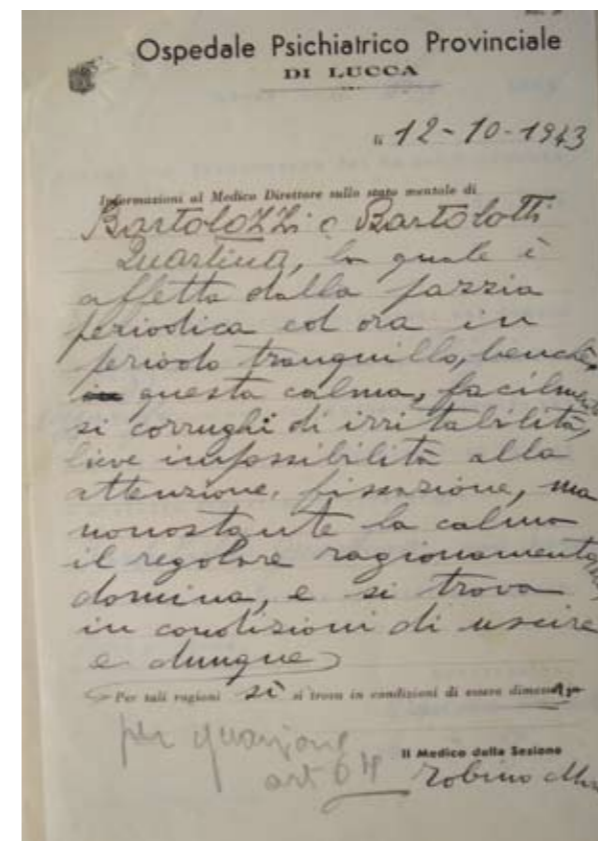 Ospedale Psichiatrico Provinciale
DI LUCCA
li 12-10-1943
Informazioni al Medico Direttore sullo stato mentale di
Bartolozzi o Bartolotti
Quartina, la quale è
affetta dalla pazzia
periodica ed ora in
periodo tranquillo, benchè
in questa calma, facilmente
si corrughi di irritabilità,
lieve impossibilità alla
attenzione, fissazione, ma
nonostante la calma
il regolare ragionamento
domina, e si trova
in condizioni di uscire
e dunque
Per tali ragioni sì si trova in condizioni di essere dimessa
per
art 64
Il Medico della Sezione
Tobino